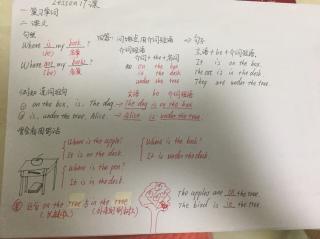 Lesson 17 课
一 复习单词
二 课文
句型
Where is my book ?
(be) 名词
Where are my books ?
(be) 名词
回答: 问地点用介词短语
介词短语
介词 + the + 名词
如 on the box
in the desk
under the tree
⇒ 句子
主语 + be + 介词短语
It is on the box.
The cat is in the desk.
They are under the tree.
主语 be 介词短语
① on the box, is, The dog → The dog is on the box.
② is, under the tree, Alice → Alice is under the tree.
看图对话
Where is the apple?
It is on the desk.
Where is the pen?
It is in the desk.
Where is the book?
It is under the desk.
区分 on the tree 与 in the tree
The apples are on the tree.
The bird is in the tree.